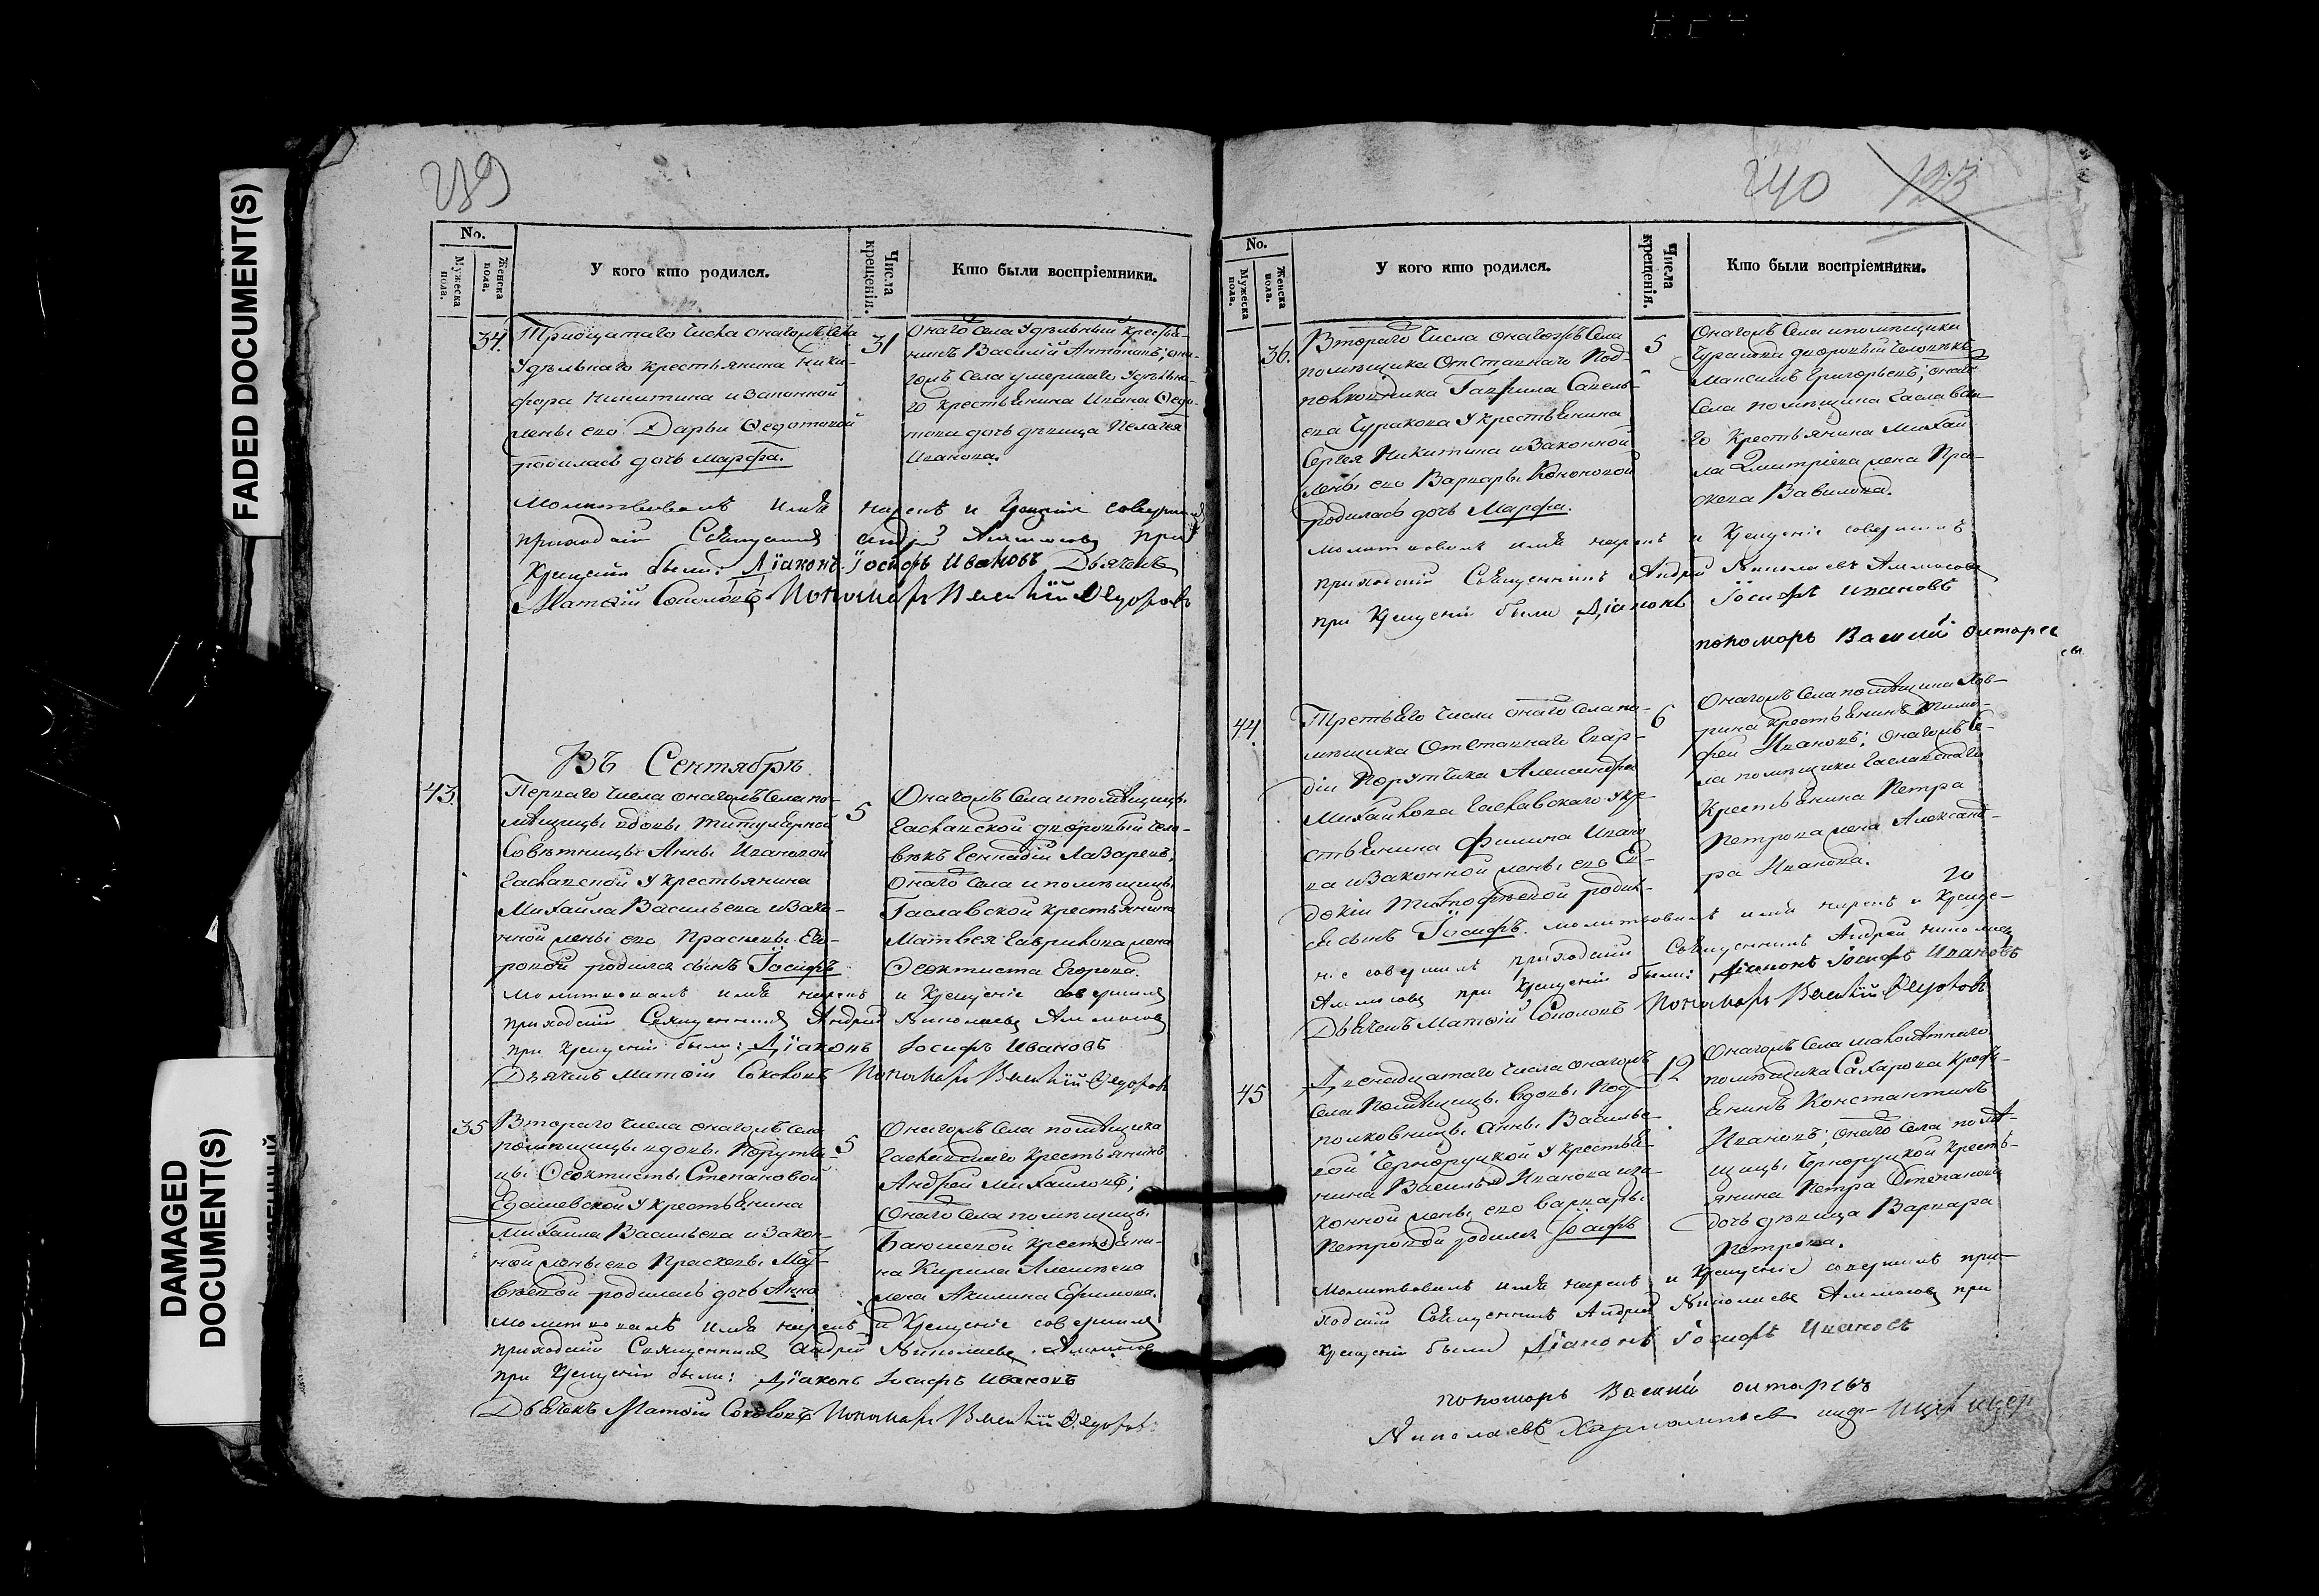 FADED DOCUMENT(S)
DAMAGED
DOCUMENT(S)
239
No.
Мужеска пола.
Женска пола.
У кого кто родился.
Числа крещенія.
Кто были воспріемники.
34.
Тридцатаго числа онагожъ села
Удѣльнаго крестьянина Ники-
фора Никитина и законной
жены его Дарьи Ѳедотовой
родилась дочь Марфа.
31
Онаго села Удѣльный крестья-
нинъ Василій Антоновъ; она-
гожъ села умершаго Удѣльна-
го крестьянина Ивана Ѳедо-
това дочь дѣвица Пелагея
Иванова.
Молитвовалъ имя нарекъ и крещеніе совершилъ
приходскій Священникъ Андрей Аммосовъ при
крещеніи были: Діаконъ Іосифъ Ивановъ Дьячекъ
Матѳій Соколовъ Пономарь Василій Ѳедоровъ
Въ Сентябрѣ
43.
Перваго числа онагожъ села по-
мѣщицы вдовы титулярной
Совѣтницы Анны Ивановой
Гаславской у крестьянина
Михайла Васильева и зако-
нной жены его Прасковьи Его-
ровой родился сынъ Іосифъ
5
Онагожъ села и помѣщицы
Гаславской дворовый чело-
вѣкъ Геннадій Лазаревъ,
онаго села и помѣщицы
Гаславской крестьянина
Матвея Гаврилова жена
Ѳеоктиста Егорова.
Молитвовалъ имя нарекъ и крещеніе совершилъ
приходскій Священникъ Андрей Николаевъ Аммосовъ
при крещеніи были: Діаконъ Іосифъ Ивановъ
Дьячекъ Матѳій Соколовъ Пономарь Василій Ѳедоровъ
35
Втораго числа онагожъ села
помѣщицы вдовы Порутчи-
цы Ѳеоктисты Степановой
у крестьянина
Михаила Васильева и закон-
ной жены его Прасковьи Мат-
вѣевой родилась дочь Анна
5
Онагожъ села помѣщика
Гаславскаго крестьянинъ
Андрей Михайловъ;
Онаго села помѣщицы
крестьяни-
на Кирила Алексѣева
жена Акилина Ефимова.
Молитвовалъ имя нарекъ и крещеніе совершилъ
приходскій Священникъ Андрей Николаевъ Аммосовъ
при крещеніи были: Діаконъ Іосифъ Ивановъ
Дьячекъ Матѳій Соколовъ Пономарь Василій Ѳедоровъ
240
123
No.
Мужеска пола.
Женска пола.
У кого кто родился.
Числа крещенія.
Кто были воспріемники.
36.
Втораго числа онагожъ села
помѣщика отставнаго Под-
полковника Гаврила Савель-
ева Чуракова у крестьянина
Сергея Никитина и законной
жены его Варвары Кононовой
родилась дочь Марфа.
5
Онагожъ села и помѣщика
Чуракова дворовый человѣкъ
Максимъ Григорьевъ; онаго
села помѣщика Гаславска-
го крестьянина Михай-
ла Дмитріева жена Пра-
скева Вавилова.
Молитвовалъ имя нарекъ и крещеніе совершилъ
приходскій Священникъ Андрей Николаевъ Аммосовъ
при крещеніи были Діаконъ Іосифъ Ивановъ
пономарь Василій
44.
Третьяго числа онаго села по-
мѣщика отставнаго Гвар-
діи Порутчика Александра
Михайлова Гаславскаго у кре-
стьянина Филипа Ивано-
ва и законной жены его Ев-
докіи Тимофѣевой родил-
ся сынъ Іосифъ. Молитвовалъ имя нарекъ и креще-
6
Онагожъ села помѣщика
крестьянинъ Тимо-
фей Ивановъ; онагожъ се-
ла помѣщика Гаславскаго
крестьянина Петра
Петрова жена Александ-
ра Иванова.
ніе совершилъ приходскій Священникъ Андрей Николаевъ
Аммосовъ при крещеніи были: Діаконъ Іосифъ Ивановъ
Дьячекъ Матѳій Соколовъ Пономарь Василій Ѳедоровъ
45
Двенадцатаго числа онагожъ
села Помѣщицы вдовы Под-
полковницы Анны Василье-
вой Черноруцкой у крестья-
нина Василья Иванова и за-
конной жены его Варвары
Петровой родился Іосифъ
12
Онагожъ села малолѣтнаго
помѣщика Сахарова кресть-
янинъ Константинъ
Ивановъ; онаго села помѣ-
щицы Черноруцкой кресть-
янина Петра Степанова
дочь дѣвица Варвара
Петрова.
Молитвовалъ имя нарекъ и крещеніе совершилъ при-
ходскій Священникъ Андрей Николаевъ Аммосовъ при
крещеніи были Діаконъ Іосифъ Ивановъ
пономарь Василій
Николаевъ